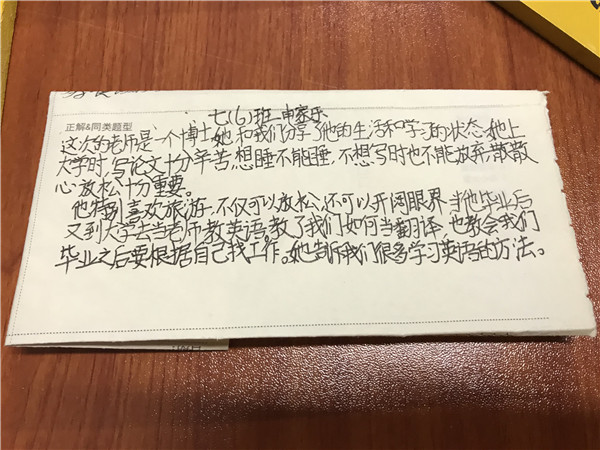 七(6)班 申家乐
正解&同类题型
这次的老师是一个博士,她和我们分享了他的生活和学习的状态.他上
大学时,写论文十分辛苦,想睡不能睡,不想写时也不能放弃,散散
心放松十分重要。
他特别喜欢旅游,不仅可以放松,还可以开阔眼界.当他毕业后
又到大学去当老师教英语,教了我们如何当翻译,也教会我们
毕业之后要根据自己找工作。她告诉我们很多学习英语的方法。